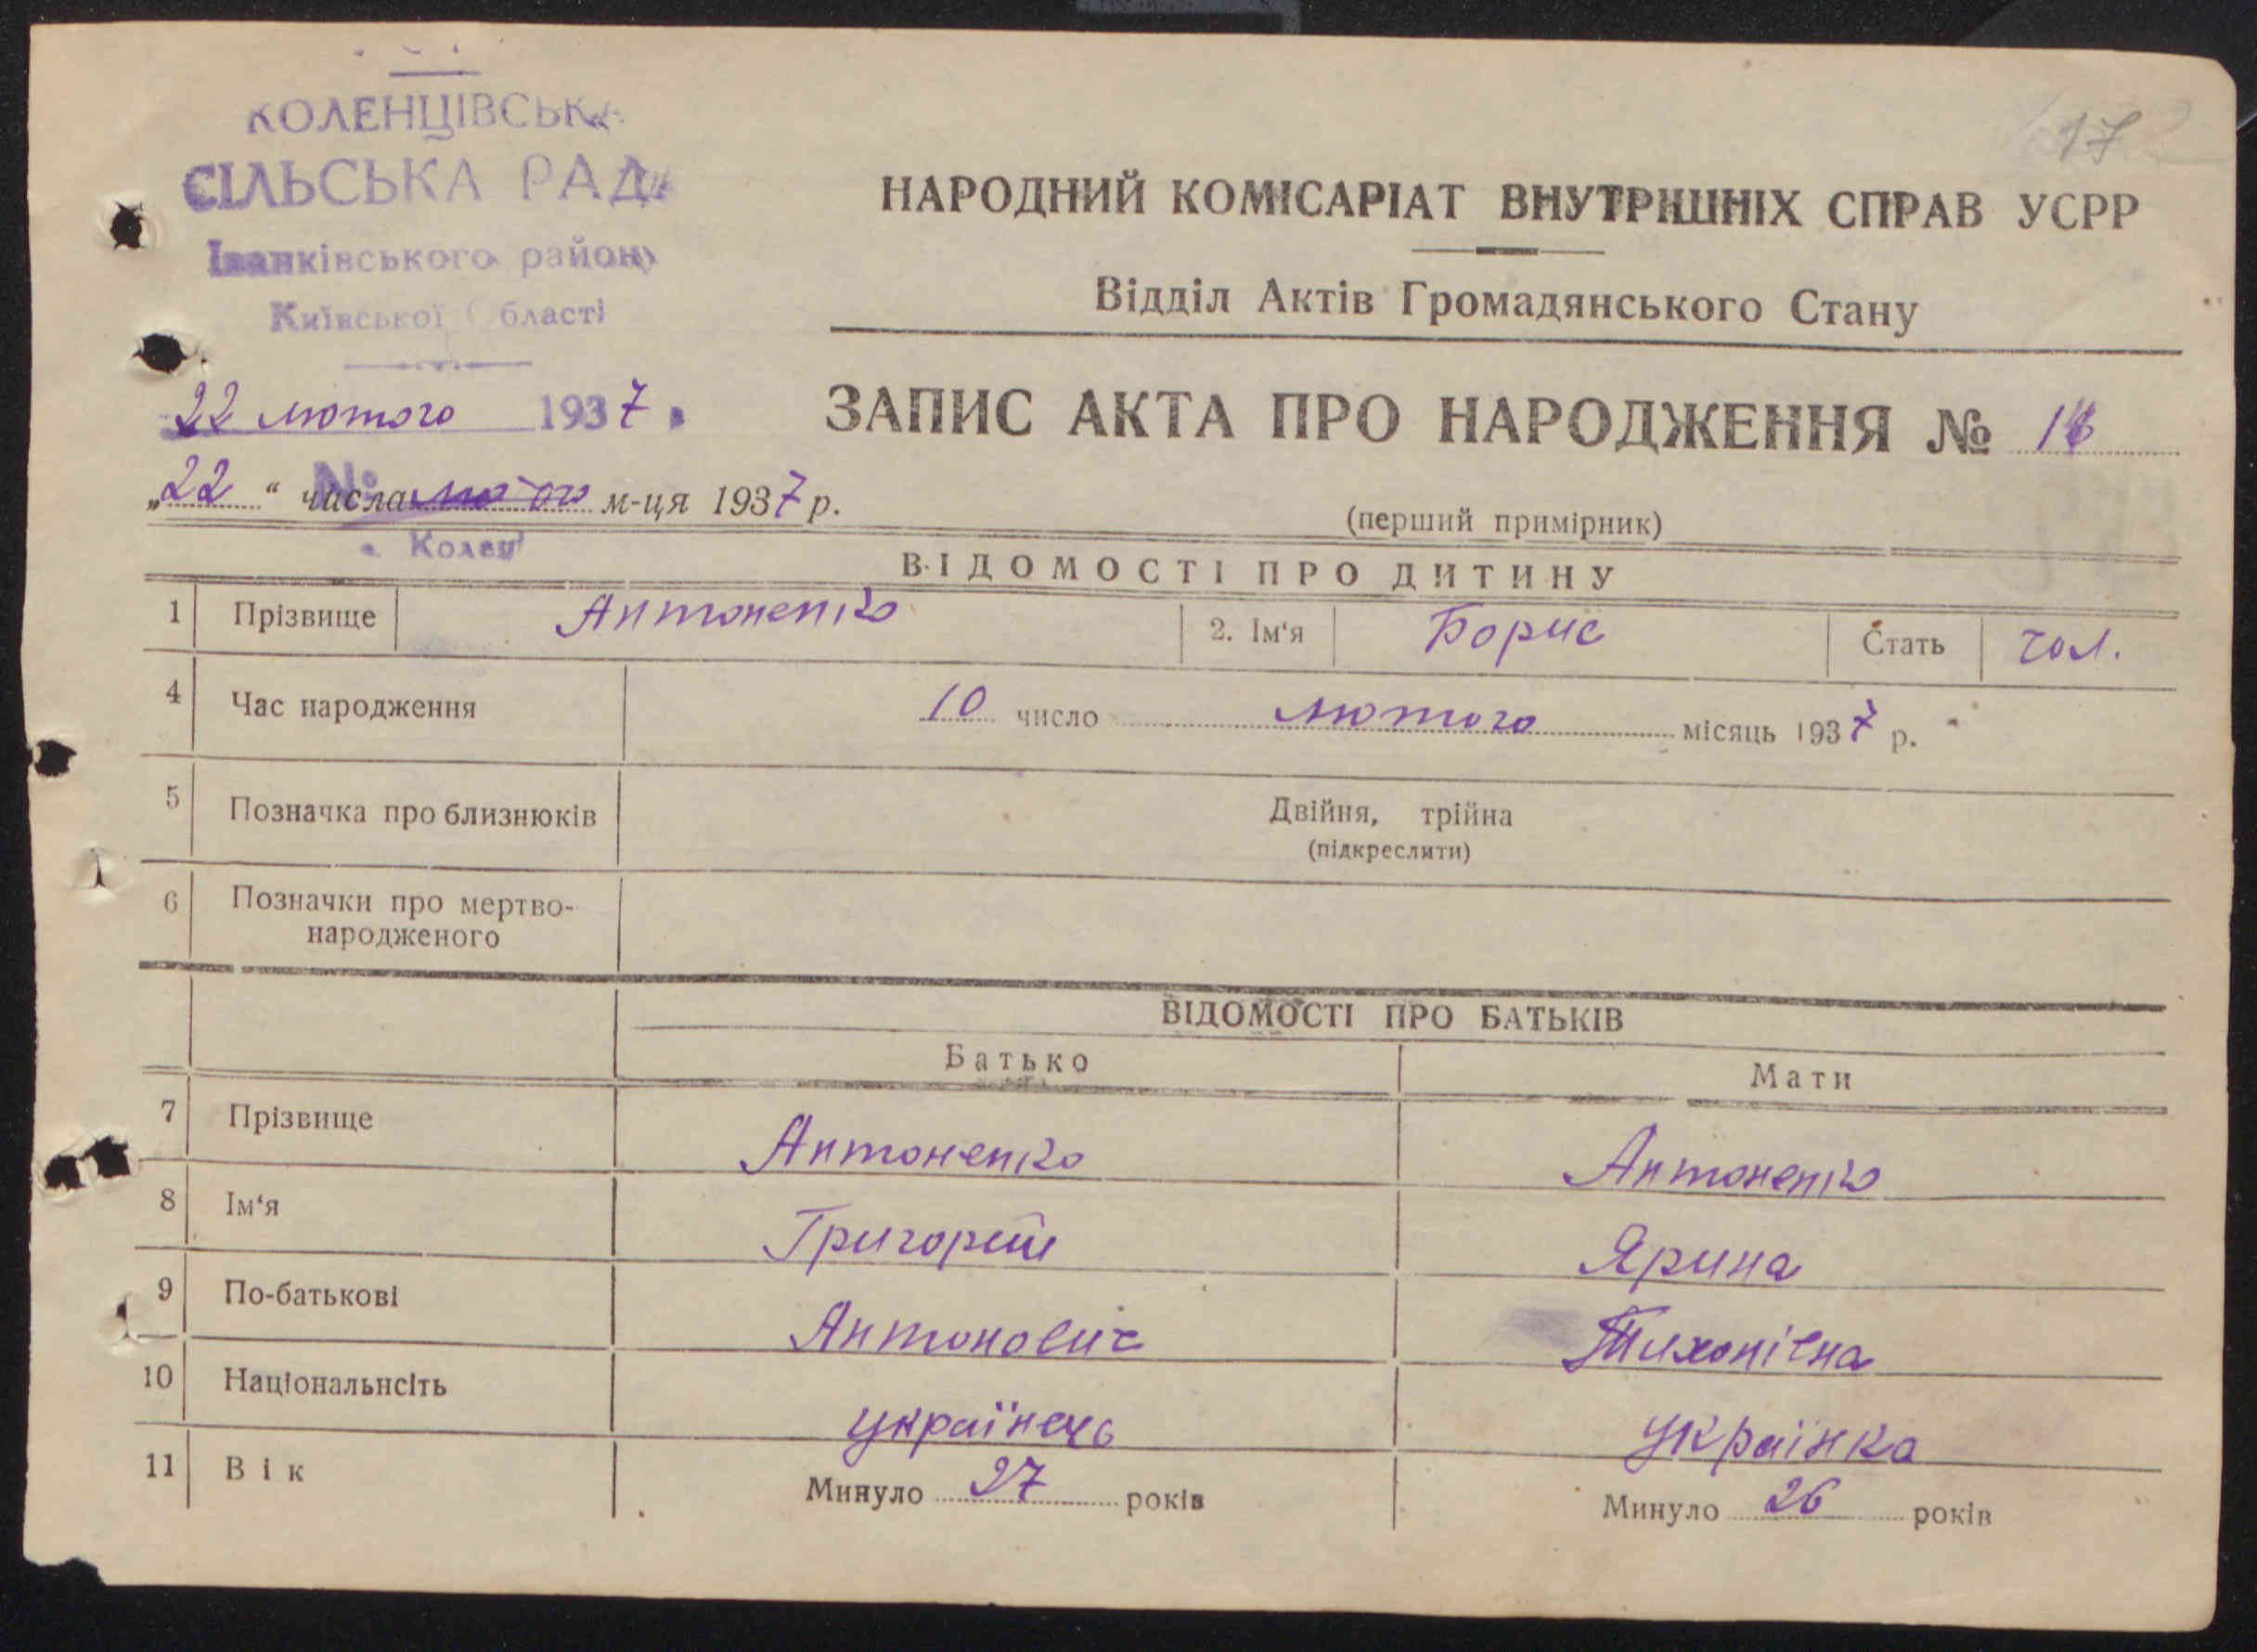 КОЛЕНЦІВСЬКА
СІЛЬСЬКА РАДА
Іванківського району
Київської Області
22 лютого 1937
17
НАРОДНИЙ КОМІСАРІАТ ВНУТРІШНІХ СПРАВ УСРР
Відділ Актів Громадянського Стану
ЗАПИС АКТА ПРО НАРОДЖЕННЯ №
„22“ числа лютого м-ця 1937 р.
№
(перший примірник)
ВІДОМОСТІ ПРО ДИТИНУ
1 Прізвище Антоненко 2. Ім‘я Борис Стать чол.
4 Час народження 10 число лютого місяць 1937 р.
5 Позначка про близнюків Двійня, трійна
(підкреслити)
6 Позначки про мертво-
народженого
ВІДОМОСТІ ПРО БАТЬКІВ
Батько Мати
7 Прізвище Антоненко Антоненко
8 Ім‘я Григорій Ярина
9 По-батькові Антонович Тихонівна
10 Національнсіть українець українка
11 Вік Минуло 27 років Минуло 26 років